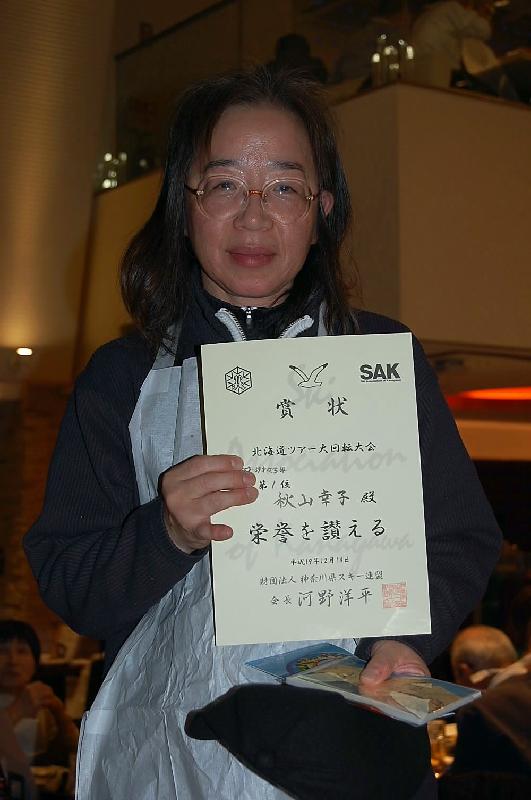 SAK
賞状
北海道ツアー大回転大会
第1位
秋山幸子 殿
栄誉を讃える
平成19年12月18日
財団法人 神奈川県スキー連盟
会長 河野洋平
Ski
Association
of Kanagawa